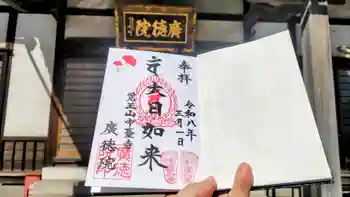 廣德院
奉拜
令和八年
三月一日
大日如来
覚王山中臺寺
廣徳院